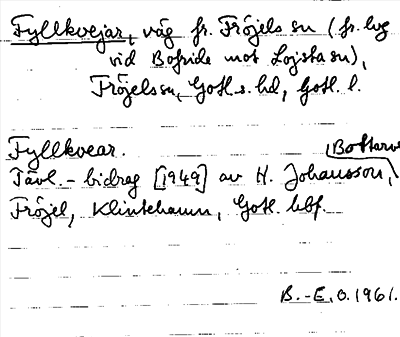 Fyllkvejar, väg fr. Fröjels sn (fr. lvg
vid Bofride mot Lojsta sn),
Fröjels sn, Gotl. s. hd, Gotl. l.
Fyllkvear.
Tävl.-bidrag [1949] av H. Johansson, Bottarve
Fröjel, Klintehamn, Gotl. hbf.
B.-E. O. 1961.